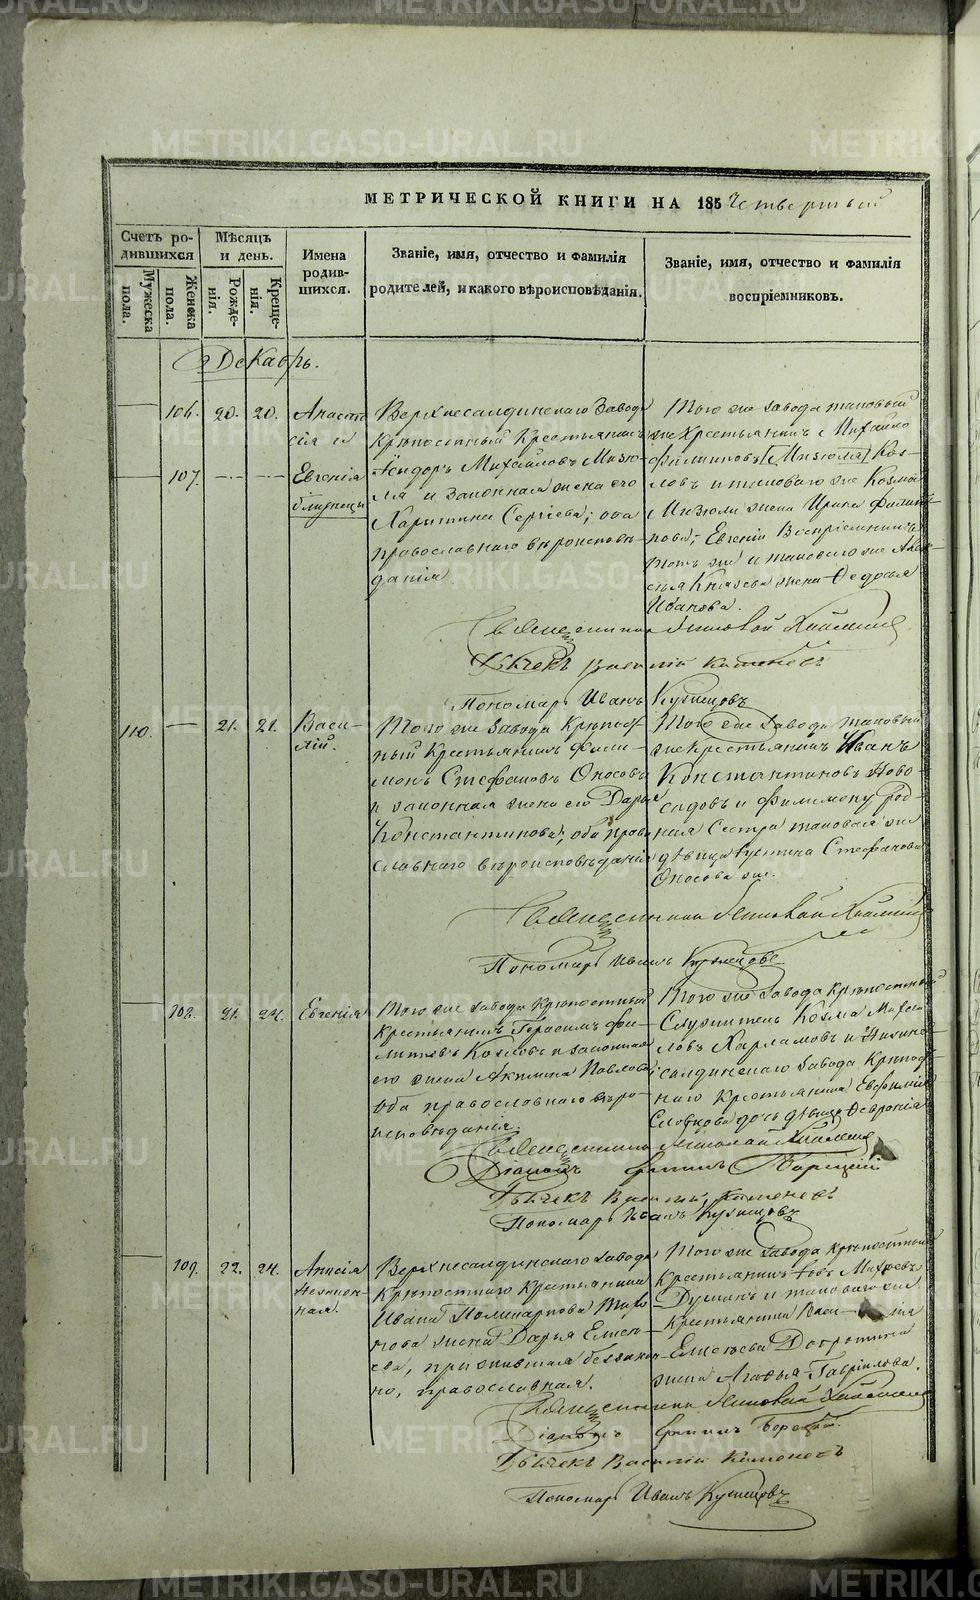 МЕТРИЧЕСКОЙ КНИГИ НА 185 Четвертый
Счетъ ро-
дившихся
Мужеска пола.
Женска пола.
Мѣсяцъ
и день.
Рожде-
нія.
Креще-
нія.
Имена
родив-
шихся.
Званіе, имя, отчество и фамилія
родителей, и какого вѣроисповѣданія.
Званіе, имя, отчество и фамилія
воспріемниковъ.
Декабрь.
106. 20. 20.
Анаста
сія и
107.
Евгенія
близнецы
Верхнесалдинскаго Завода
Крѣпостный Крестьянинъ
Михайловъ Мизю-
ля и законная жена его
Харитина Сергіева; оба
православнаго вѣроисповѣ-
данія.
Того же завода таковый
же Крестьянинъ Михайло
Филиповъ (Мизюля) Коз-
ловъ и таковаго же Козмы
Мизюли жена Ирина Филип-
пова; Евгеніи Воспріемникъ
тотъ же и таковаго же
Князева жена Федосья
Иванова.
Священникъ Николай
Дьячекъ Василій
Пономарь Иванъ Кузнецовъ
110. 21. 21.
Васи-
лій.
Того же завода Крѣпост-
ный Крестьянинъ Фили-
монъ Стефановъ Оносовъ
и законная жена его Дарья
Константинова; оба право
славнаго вѣроисповѣданія
Того же завода таковый
же Крестьянинъ Иванъ
Константиновъ Ново-
садовъ и Филимону род-
ная Сестра таковая же
дѣвица Устина Стефанова
Оносова же.
Священникъ Николай
Пономарь Иванъ Кузнецовъ.
108. 21. 24.
Евгенія
Того же завода Крѣпостный
Крестьянинъ Герасимъ Фи-
липовъ Козловъ и законная
его жена Акилина Павлова;
Оба православнаго вѣро-
исповѣданія.
Того же завода Крѣпостный
Служитель Козма Михай-
ловъ Харламовъ и Нижне-
салдинскаго завода Крѣпост-
наго Крестьянина Евфимія
Словцова дочь дѣвица Февронія
Священникъ Николай
Діаконъ
Дьячекъ Василій
Пономарь Иванъ Кузнецовъ
109. 22. 24.
Анисія
Незакон-
ная.
Верхнесалдинскаго завода
Крѣпостнаго Крестьянина
Ивана Поликарпова
нова жена Дарья Елисѣ-
ева, прижившая беззакон-
но, православная.
Того же завода крѣпостный
Крестьянинъ Іовъ Михѣевъ
и таковаго же
Крестьянина Васи- лія
Елисѣева
жена Агафья Гавріилова.
Священникъ Николай
Діаконъ
Дьячекъ Василій
Пономарь Иванъ Кузнецовъ
METRIKI.GASO-URAL.RU